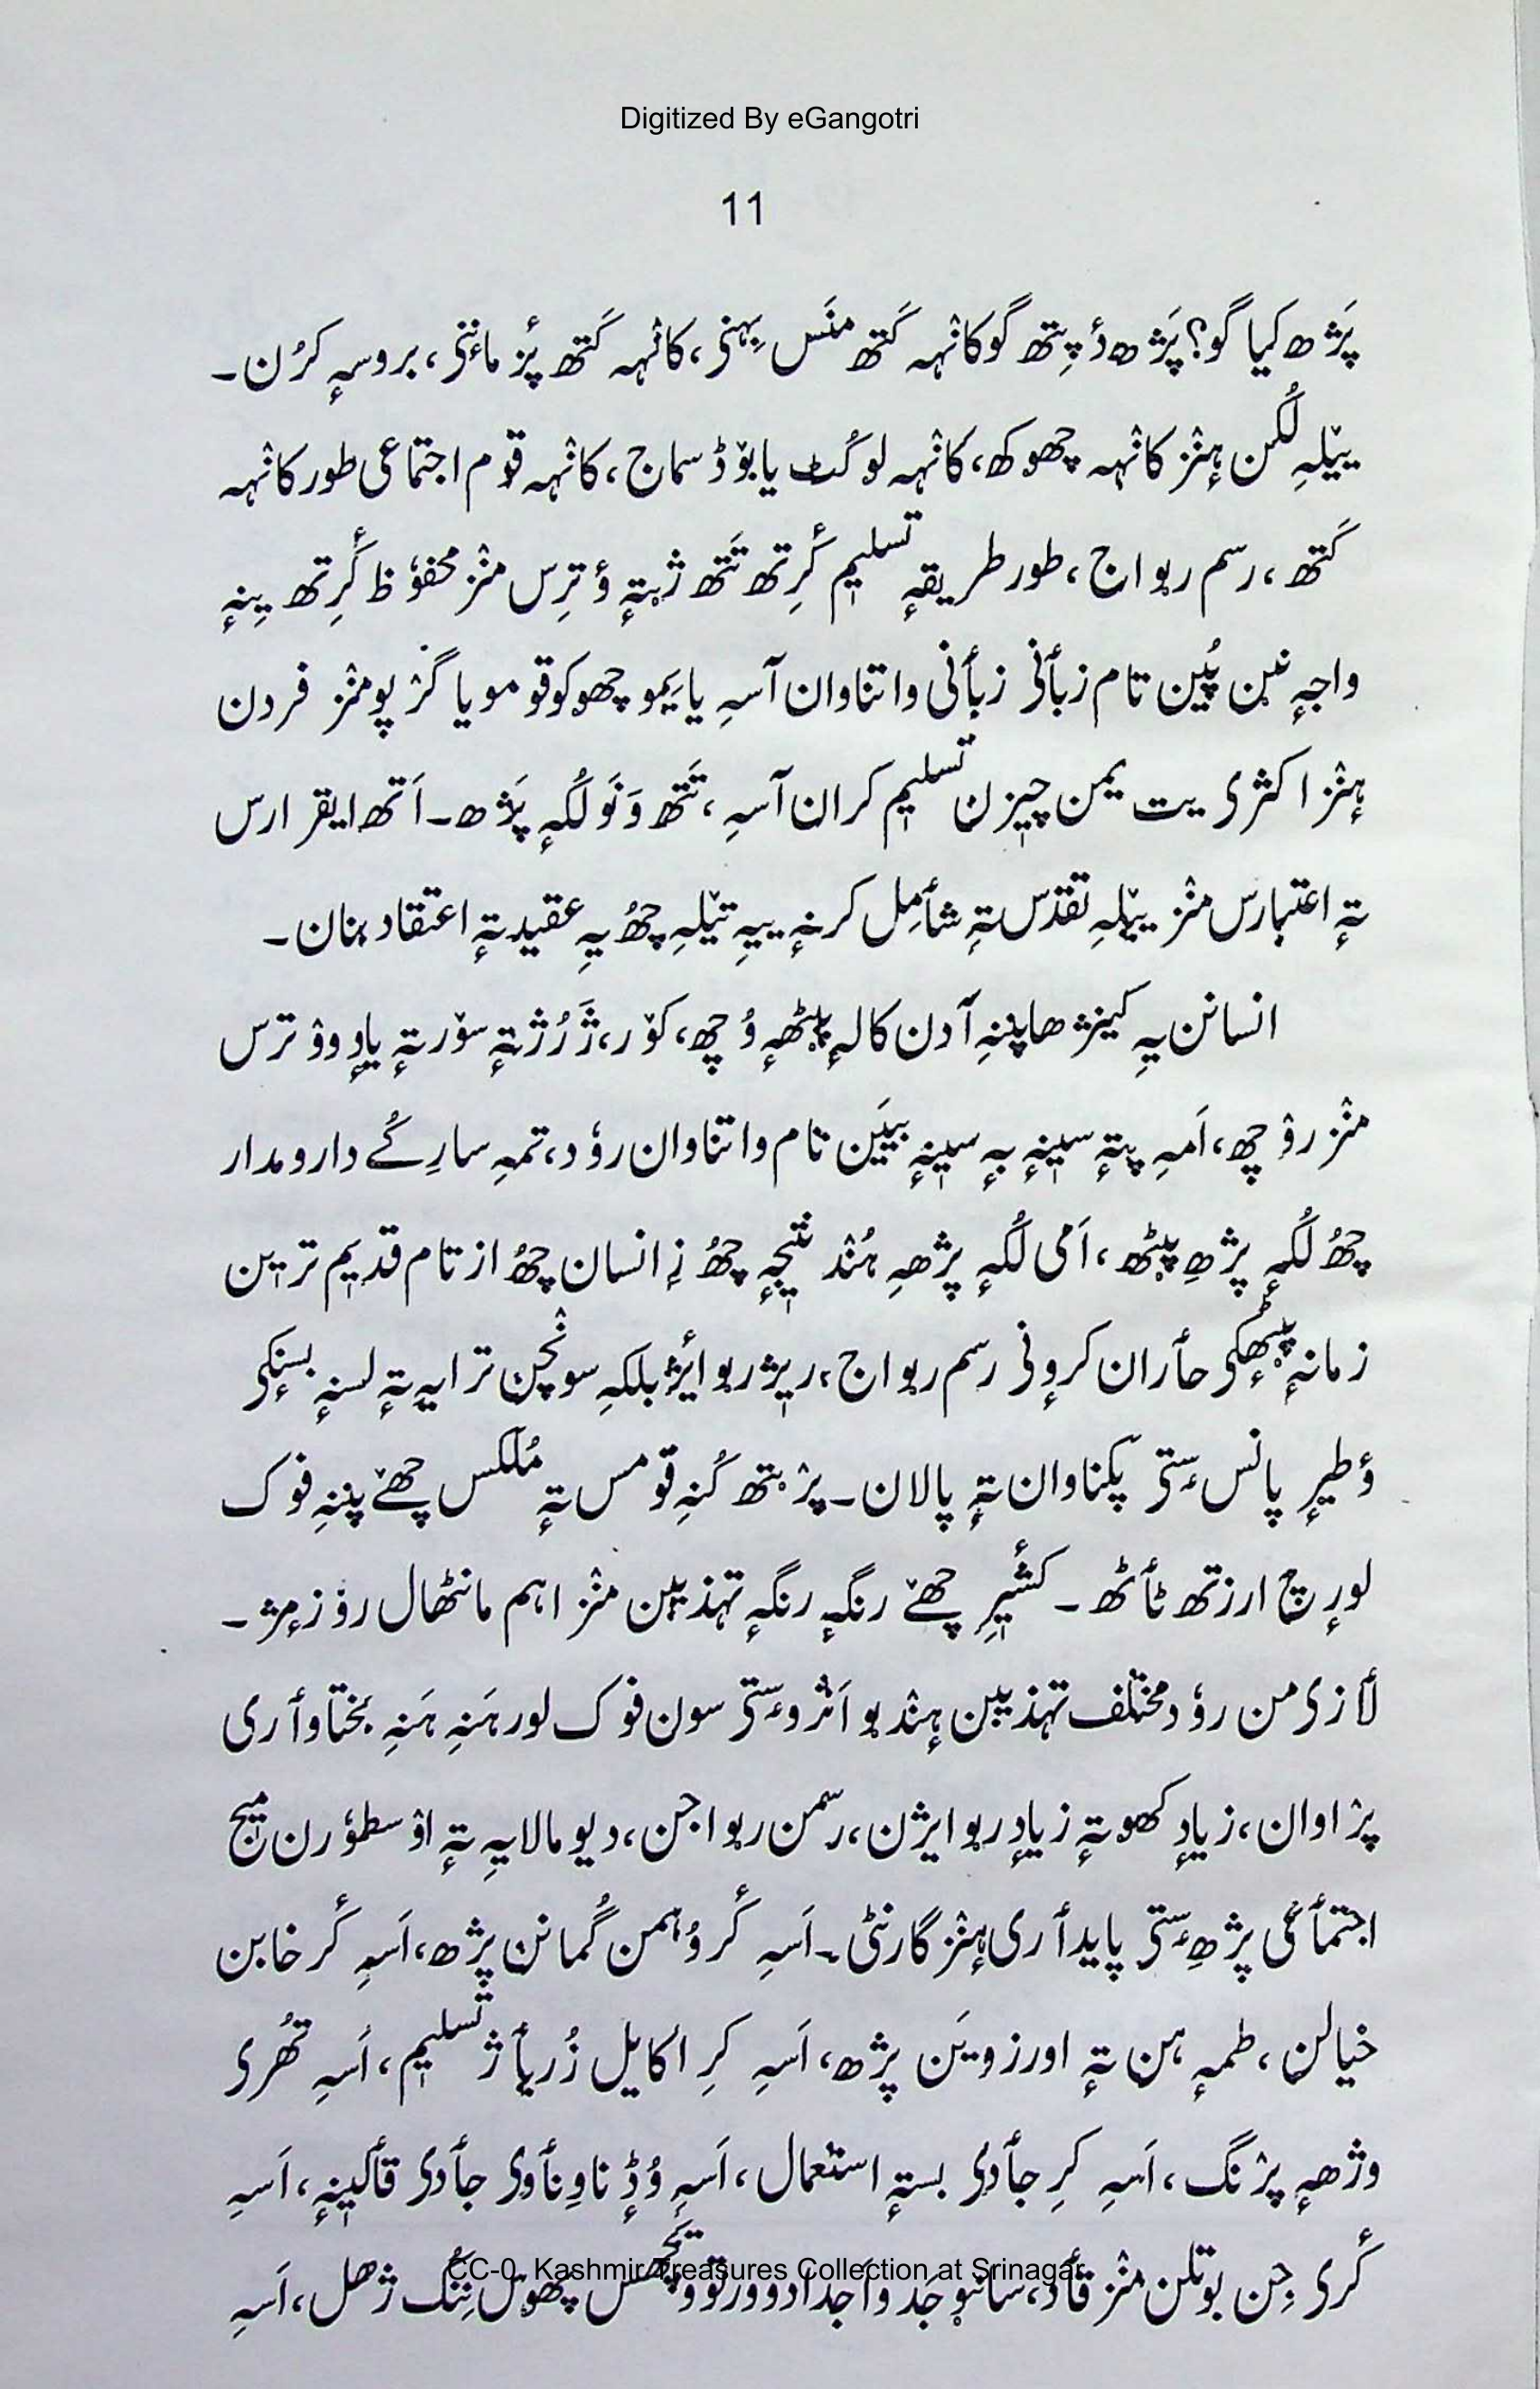 Digitized By eGangotri
11
پَژھ کیا گو؟ پَژھ دُپتھ گو کانٛہہ کَتھ منَس بِہنۍ، کانٛہہ کَتھ پٔز مانٔنۍ، بروسہٕ کرُن۔
ییٚلہِ لُکن ہٕنٛز کانٛہہ چھوکھ، کانٛہہ لوکُٹ یا بوٚڈ سماج، کانٛہہ قوم اجتماعی طور کانٛہہ
کَتھ، رسم رِواج، طور طریقہٕ تسلیم کٔرِتھ تَتھ ژیتہٕ وٕترِس منٛز محفوٗظ کٔرِتھ یِنہٕ
واجہِ نین پُین تام زبأنۍ زبأنی واتناوان آسہِ یا یَیمو چھوکو قومو یا گرٛپو منٛز فردن
ہٕنٛز اکثری یت یمن چیٖزن تسلیم کران آسہِ، تَتھ وَنَو لُکہٕ پَژھ۔ اَتھ ایقرارس
تہٕ اعتبارس منٛز ییٚلہِ تقدّس تہِ شأمِل کرنہٕ ییہِ تیٚلہِ چھُ یہِ عقیدتہٕ اعتقاد بنان۔
انسانن یہِ کینژھا پننہِ آدن کالہٕ پیٹھہٕ وُچھ، کوٚر، ژرُژتہٕ سوٚرتہٕ یادٕ ووٚترس
منٛز روٚچھ، اَمہِ پتہٕ سیٖنہٕ بہٕ سیٖنہٕ بییَن تام واتناوان روٗد، تمہِ سارِکُے دارومدار
چھُ لُکہٕ پژھہِ پیٹھ، اَمی لُکہٕ پژھہِ ہُنٛد نتیٖجہٕ چھُ زِ انسان چھُ از تام قدیٖم ترین
زمانہٕ پیٹھٕکۍ حأران کرونۍ رسم رِواج، ریٖژ رِوایٔژ بلکہِ سونٛچن ترایہِ تہٕ لسنہٕ بسنٕکۍ
وٕطیرٕ پانس سٟتۍ پکناوان تہٕ پالان۔ پرٛیتھ کُنہِ قومس تہٕ مُلکس چھےٚ پننہِ فوک
لورٕچ ارزتھ ٹأٹھ۔ کٔشیٖرِ چھےٚ رنگہٕ رنگہٕ تہذیبن منٛز اہم مانٹھال روٗزمٕژ۔
لأزۍمن روٗد مختلف تہذیبن ہٕنٛدیو اَثرو سٟتۍ سون فوک لور ہَنہِ ہَنہِ بختاوأری
پرٛاوان، زیادٕ کھوتہٕ زیادٕ رِوایژن، رسمن رِواجن، دیومالایہِ تہٕ اوٚسطوٗرن میج
اجتمأعی پژھِ سٟتۍ پایدأری ہٕنٛز گارنٹی۔ اَسہِ کٔر وُہمن گُمانن پژھ، اَسہِ کٔر خابن
خیالن، طمہٕ ہن تہٕ اورزویَن پژھ، اَسہِ کرِ اکایل زُریأژ تسلیم، اَسہِ تھُرۍ
وژھہٕ پرٛنگ، اَسہِ کرِ جأدۍ بستہٕ استعمال، اَسہِ وُڈٕناوِنأوۍ جأدۍ قألیٖنہٕ، اَسہِ
کٔرۍ جِن بوتلن منٛز قأد، سانیو جَد و اَجدادو ورتوو پھوٗس تُنگ ژھل، اَسہِ
CC-0. Kashmir Treasures Collection at Srinagar